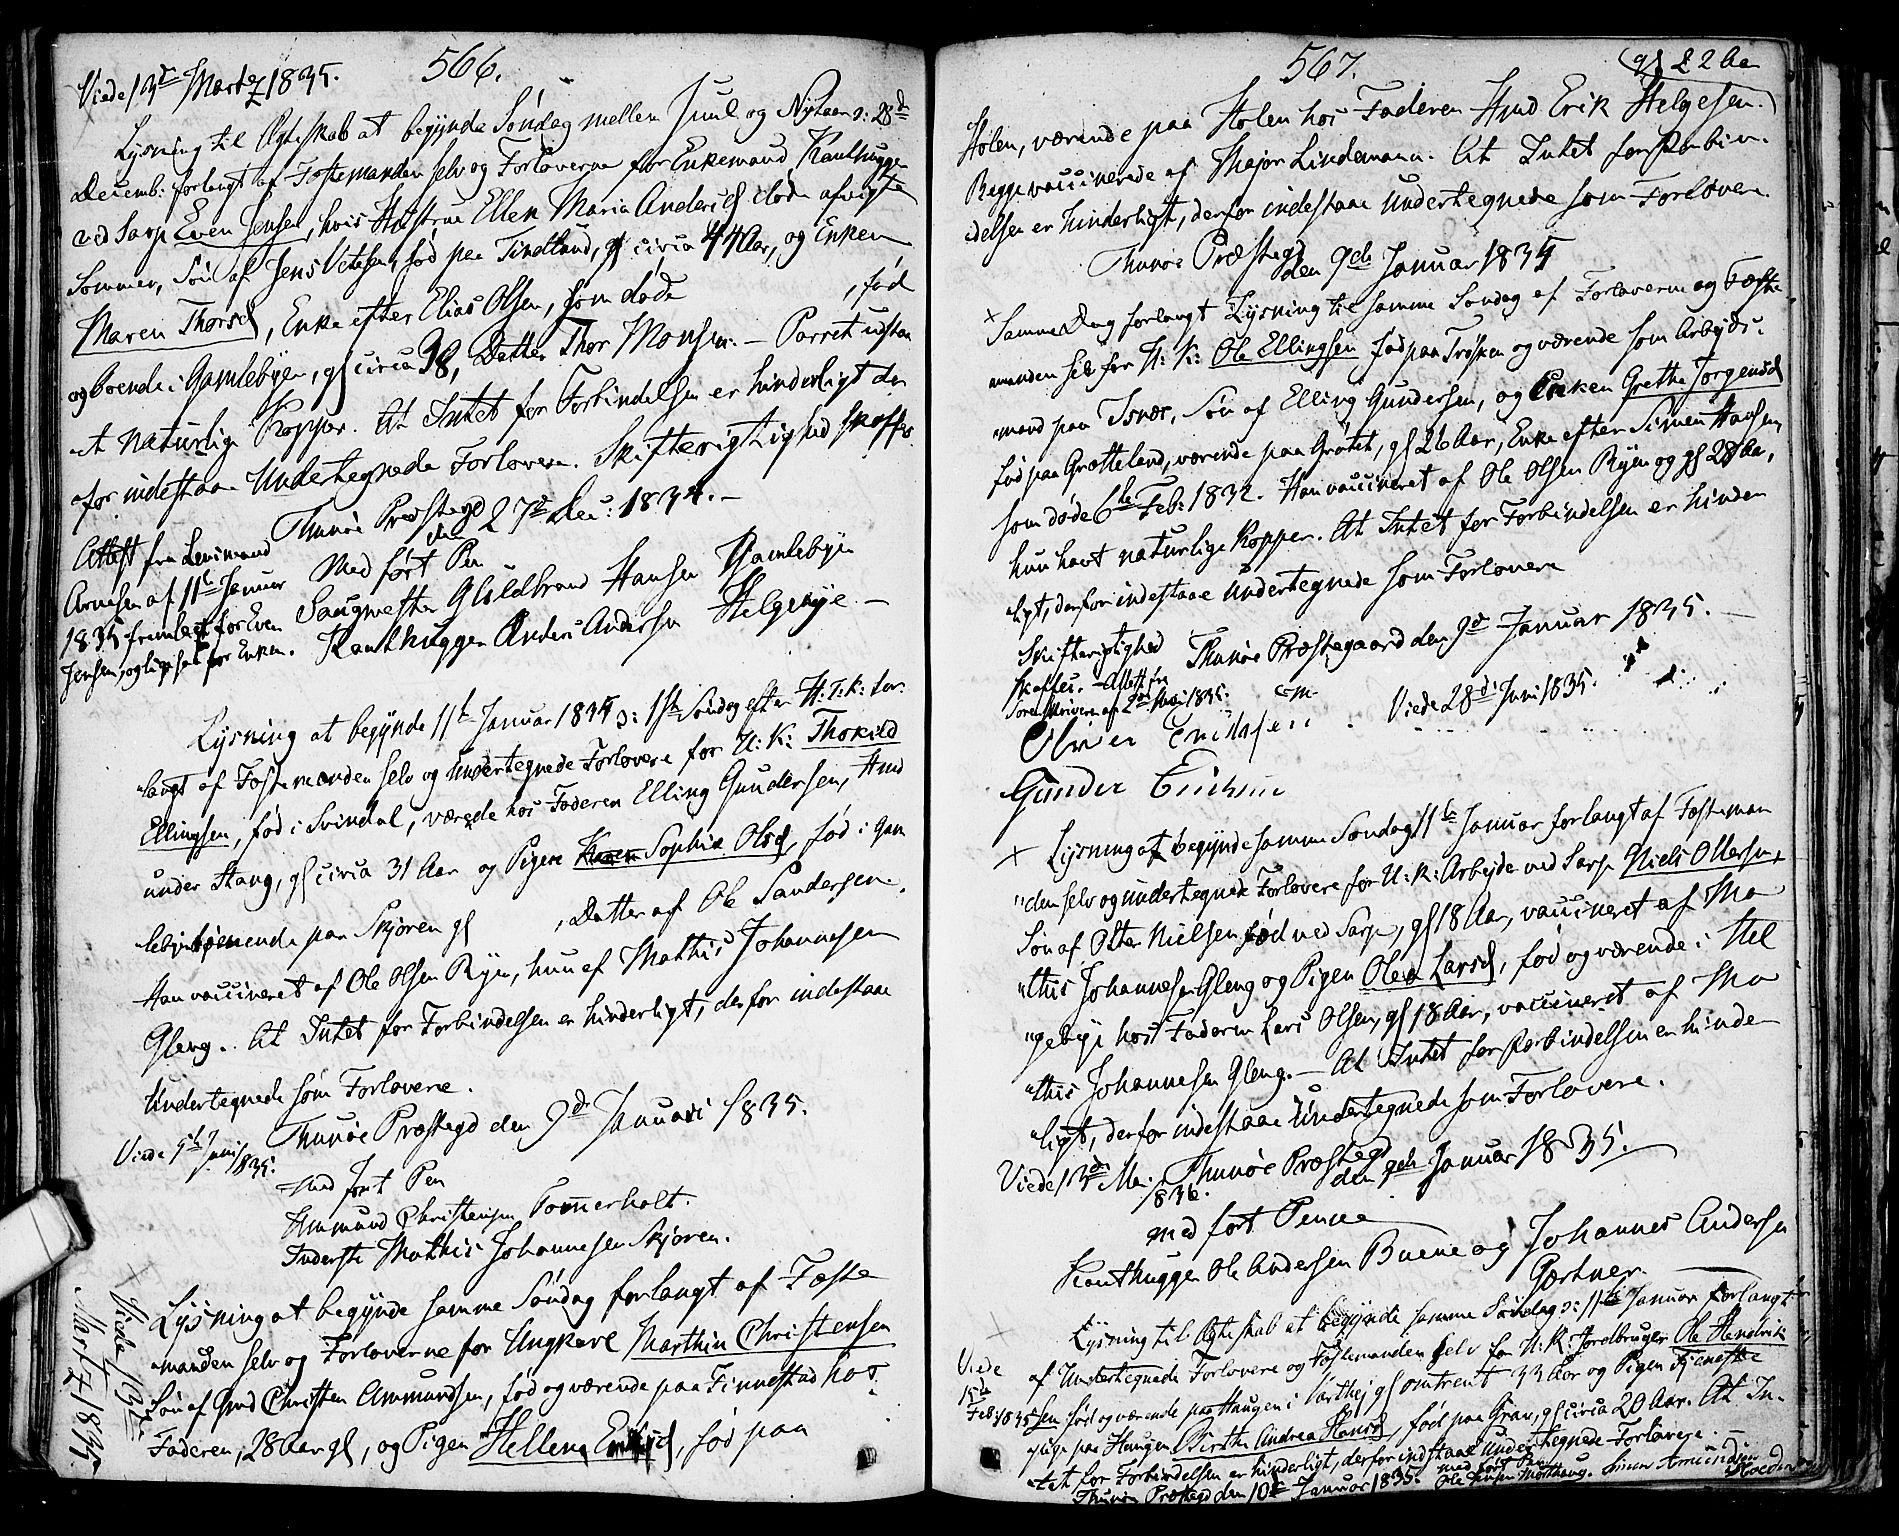 566.
Viede 13de Martz 1835.
Lysning til Ægteskab at begynde Søndag mellem Juul og Nytaar d: 28d
Decemb: forlangt af Fæstemanden selv og Forloverne for Enkemand Kanthugger
ved Sarp Even Jensen, hvis Hustrue Ellen Maria Andersd døde afvigte
Sommer, Søn af Jens, fød paa Tindlund, gl circa 44 Aar, og Enken
Maren Thorsd, Enke efter Elias Olsen, som døde , fød
og boende i Gamlebyen, gl circa 38, Datter Thor Monsen. – Parret udstaa
-et naturlige Kopper. At Intet for Forbindelsen er hinderligt der
-for indestaae Undertegnede Forlovere. Skifterigtighed skaffes.
Thunøe Præstegd den 27de Dec: 1834. –
Med ført Pen
Attest fra Lensmand
Arnesen af 11te Januar
1835 fremlagt for Even
Jensen, og ligesaa for Enken.
Saugmester Guldbrand Hansen Gamlebyen
Kanthugger Anders Andersen Helgebye. –
Lysning at begynde 11te Januar 1835 d: 1ste Søndag efter H: 3: K: for:
-langt af Fæstemanden selv og undertegnede Forlovere for U: K: Thorkild
Ellingsen, fød i Svindal, værende hos Faderen Elling Gundersen, Hmd
under Stang, gl circa 31 Aar og Pigen Karen Sophia Olsd, fød i Gam
lebyen tjenende paa Skjøren gl , Datter af Ole Pandersen.
Han vaccineret af Ole Olsen Ryen, hun af Mathis Johannesen
Gleng. At Intet for Forbindelsen er hinderligt, derfor indestaae
Undertegnede som Forlovere.
Thunøe Præstegd den 9de Januari 1835.
Viede 5te Juni
1835.
Med ført Pen
Ammund Christensen Tomerholt.
Inderste Mathis Johannesen Skjøren.
Viede 13de
Martz 1835
Lysning at begynde samme Søndag forlangt af Fæste
-manden selv og Forloverne for Ungkarl Marthin Christensen
Søn af Gmd Christen Ammundsen, fød og værende paa Finnestad hos
Faderen, 28 Aar gl, og Pigen Hellena Eriksd, fød paa
567.
gl 22 Aa
Holen, værende paa Holen hos Faderen Hmd Erik Helgesen.
Begge vaccinerede af Major Lindemann. At Intet for Forbin-
delsen er hinderligt, derfor indestaae Undertegnede som Forlovere.
Thunøe Præstegd
den 9de Januar 1835
× Samme Dag forlangt Lysning til samme Søndag af Forloverne og Fæste
-manden selv for U: K: Ole Ellingsen fød paa Trøsken og værende som Arbejds-
-mand paa Isnær, Søn af Elling Gundersen, og Enken Grethe Jørgensd
fød paa Grotteland, værende paa Grøtet, gl 26 Aar, Enke efter Simen Hansen,
som døde 6te Feb: 1832. Han vaccineret af Ole Olsen Ryen og gl 28 Aar,
hun havt naturlige Kopper. At Intet for Forbindelsen er hinder
-ligt, derfor indestaae Undertegnede som Forlovere
Skifterigtighed
skaffes. – Attest fra
Sorenskriveren af 2den Mai 1835.
Thunøe Præstegaard den 9de Januar 1835. –
Viede 28de Juni 1835.
Gunder
× Lysning at begynde samme Søndag 11te Januar forlangt af Fæsteman
-den selv og undertegnede Forlovere for U: K: Arbejder ved Sarp Niels Olsen,
Søn af Olter Nielsen fød ved Sarp, gl 18 Aar, vaccineret af Ma
-this Johannesen Gleng og Pigen Olea Larsd, fød og værende i Hel
-gebye hos Faderen Lars Olsen, gl 18 Aar, vaccineret af Ma
-this Johannesen Gleng. – At Intet for Forbindelsen er hinder
-ligt, derfor indestaae Undertegnede som Forlovere.
Viede 13de
1836.
Thunøe Præstegd
den 9de Januar 1835.
med ført Penne
Kanthugger Ole Andersen Buene og Johannes Andersen
Gartner.
Viede
15de
Feb: 1835
Lysning til Ægteskab at begynde samme Søndag d: 11te Januar forlangt
af Undertegnede Forlovere og Fæstemanden selv for U: K: Jordbruger Ole Hendrik
sen fød og værende paa Haugen i Varteig gl omtrent 33 Aar og Pigen Tjeneste
-pige paa Haugen Birthe Andrea Hansd, fød paa Grav, gl circa 20 Aar. At In-
-tet for Forbindelsen er hinderligt, derfor indestaae Undertegnede Forlovere. –
Thunøe Præstegd den 10de Januar 1835.
med ført Pen
Ole Jensen Simen Amundsen